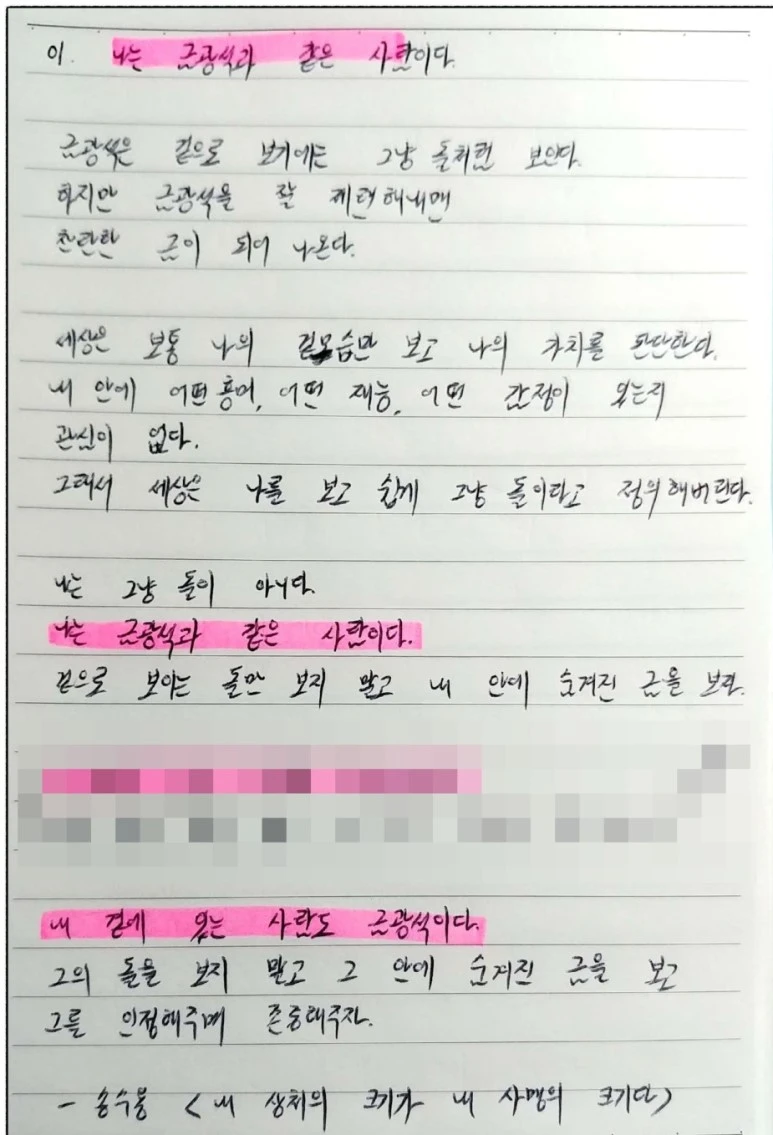 01. 나는 금광석과 같은 사람이다.
금광석은 겉으로 보기에는 그냥 돌처럼 보인다.
하지만 금광석을 잘 제련해내면
찬란한 금이 되어 나온다.
세상은 보통 나의 겉모습만 보고 나의 가치를 판단한다.
내 안에 어떤 용기, 어떤 재능, 어떤 감정이 있는지
관심이 없다.
그래서 세상은 나를 보고 쉽게 그냥 돌이라고 정의해버린다.
나는 그냥 돌이 아니다.
나는 금광석과 같은 사람이다.
겉으로 보이는 돌만 보지 말고 내 안에 숨겨진 금을 보라.
내 곁에 있는 사람도 금광석이다.
그의 돌을 보지 말고 그 안에 숨겨진 금을 보고
그를 인정해주며 존중해주자.
- 송수용 <내 상처의 크기가 내 사명의 크기다>